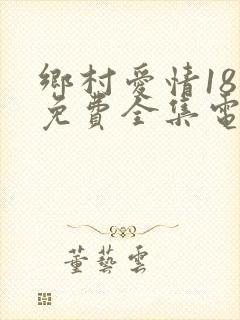 鄉村愛情18
免費全集電
董藝雲